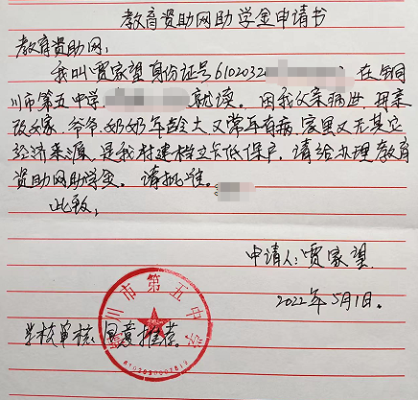 教育资助网助学金申请书
教育资助网：
我叫贾家望身份证号6102032 在铜
川市第五中学 就读。因我父亲病逝、母亲
改嫁、爷爷、奶奶年龄大又常年有病，家里又无其它
经济来源，是我村建档立卡低保户，请给办理教育
资助网助学金。请批准。
此致，
申请人：贾家望
2022年5月1日。
学校审核：同意推荐。
川市第五中学